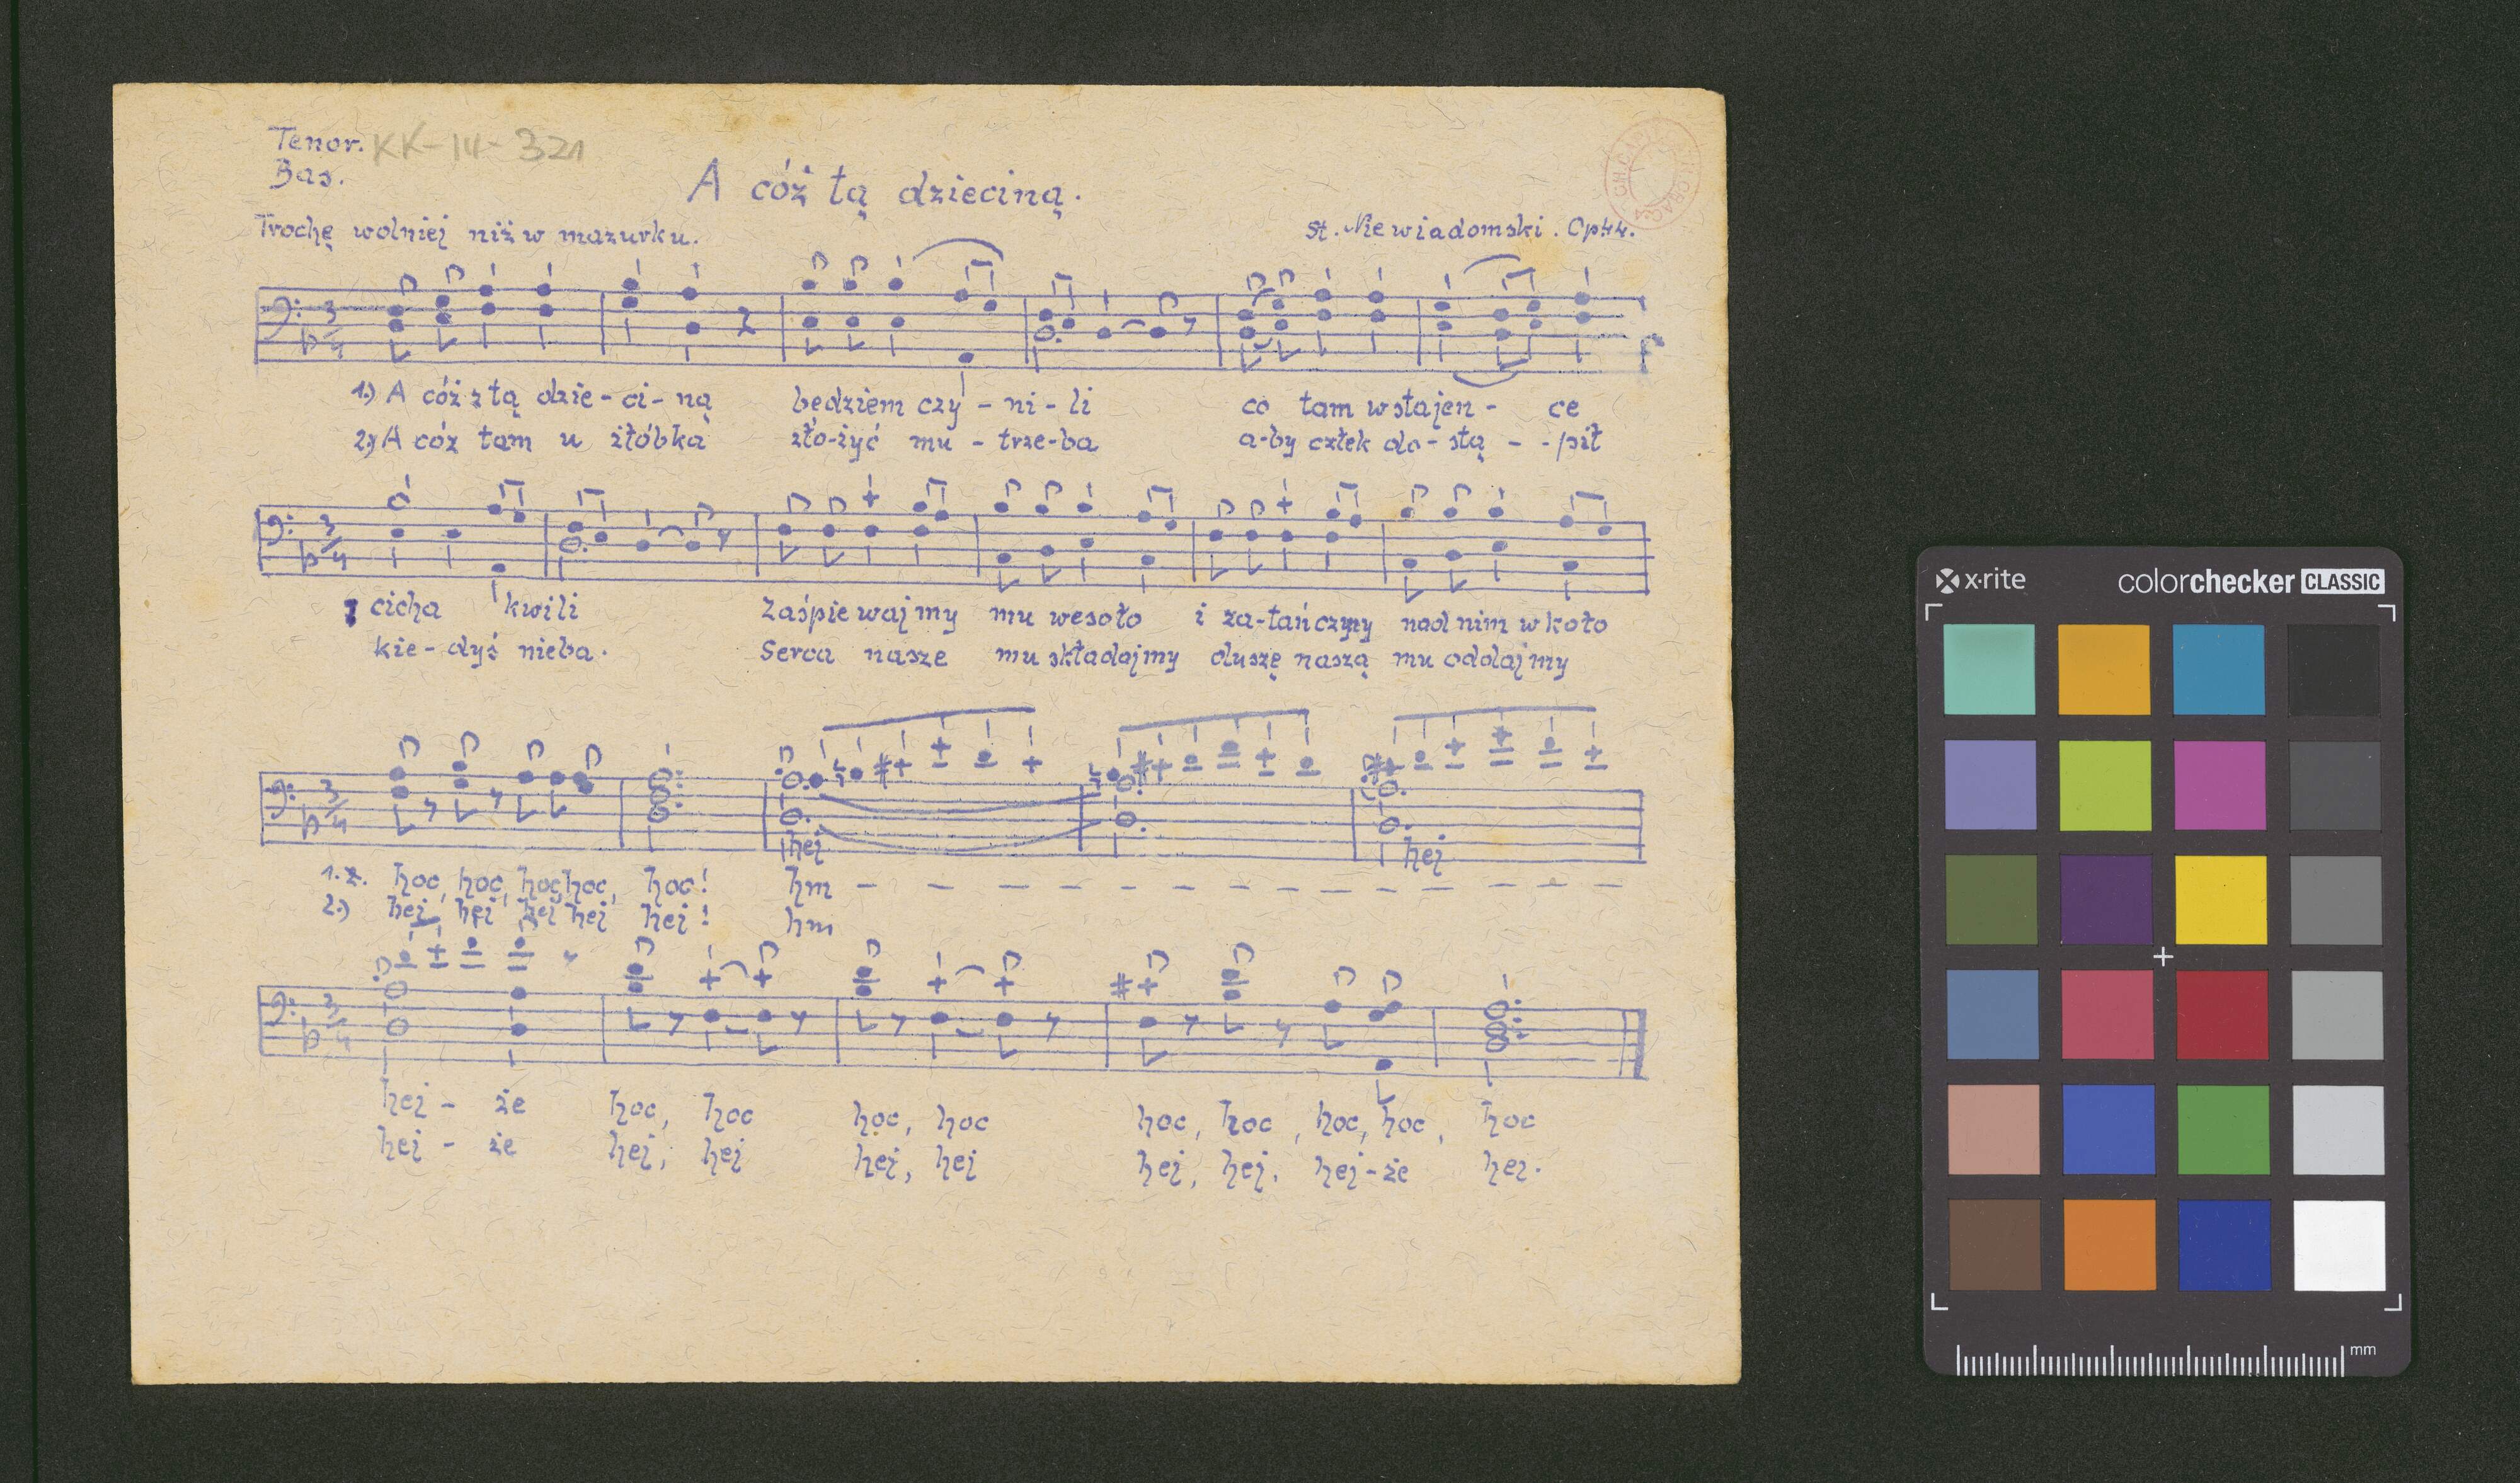 Tenor. KK-IV-321
Bas.
A cóż tą dzieciną.
Trochę wolniej niż w mazurku.
St. Niewiadomski. Op44.
1.) A cóż z tą dzie-ci-ną będziem czy-ni-li co tam w stajen- ce
2.) A cóż tam u żłóbka zło-żyć mu-trze-ba a-by człek do-stą--pił
cicha kwili Zaśpiewajmy mu wesoło i za-tańczymy nad nim w koło
kie-dyś nieba. Serca nasze mu składajmy duszę naszą mu oddajmy
hej hej
1.z. hoc, hoc, hoc, hoc, hoc! hm — — — — — — — — — — — — — —
2.) hej, hej hej hej hej! hm
hej- że hoc, hoc hoc, hoc hoc, hoc, hoc, hoc, hoc
hej- że hej, hej hej, hej hej, hej, hej-że hej.
x·rite colorchecker CLASSIC
mm